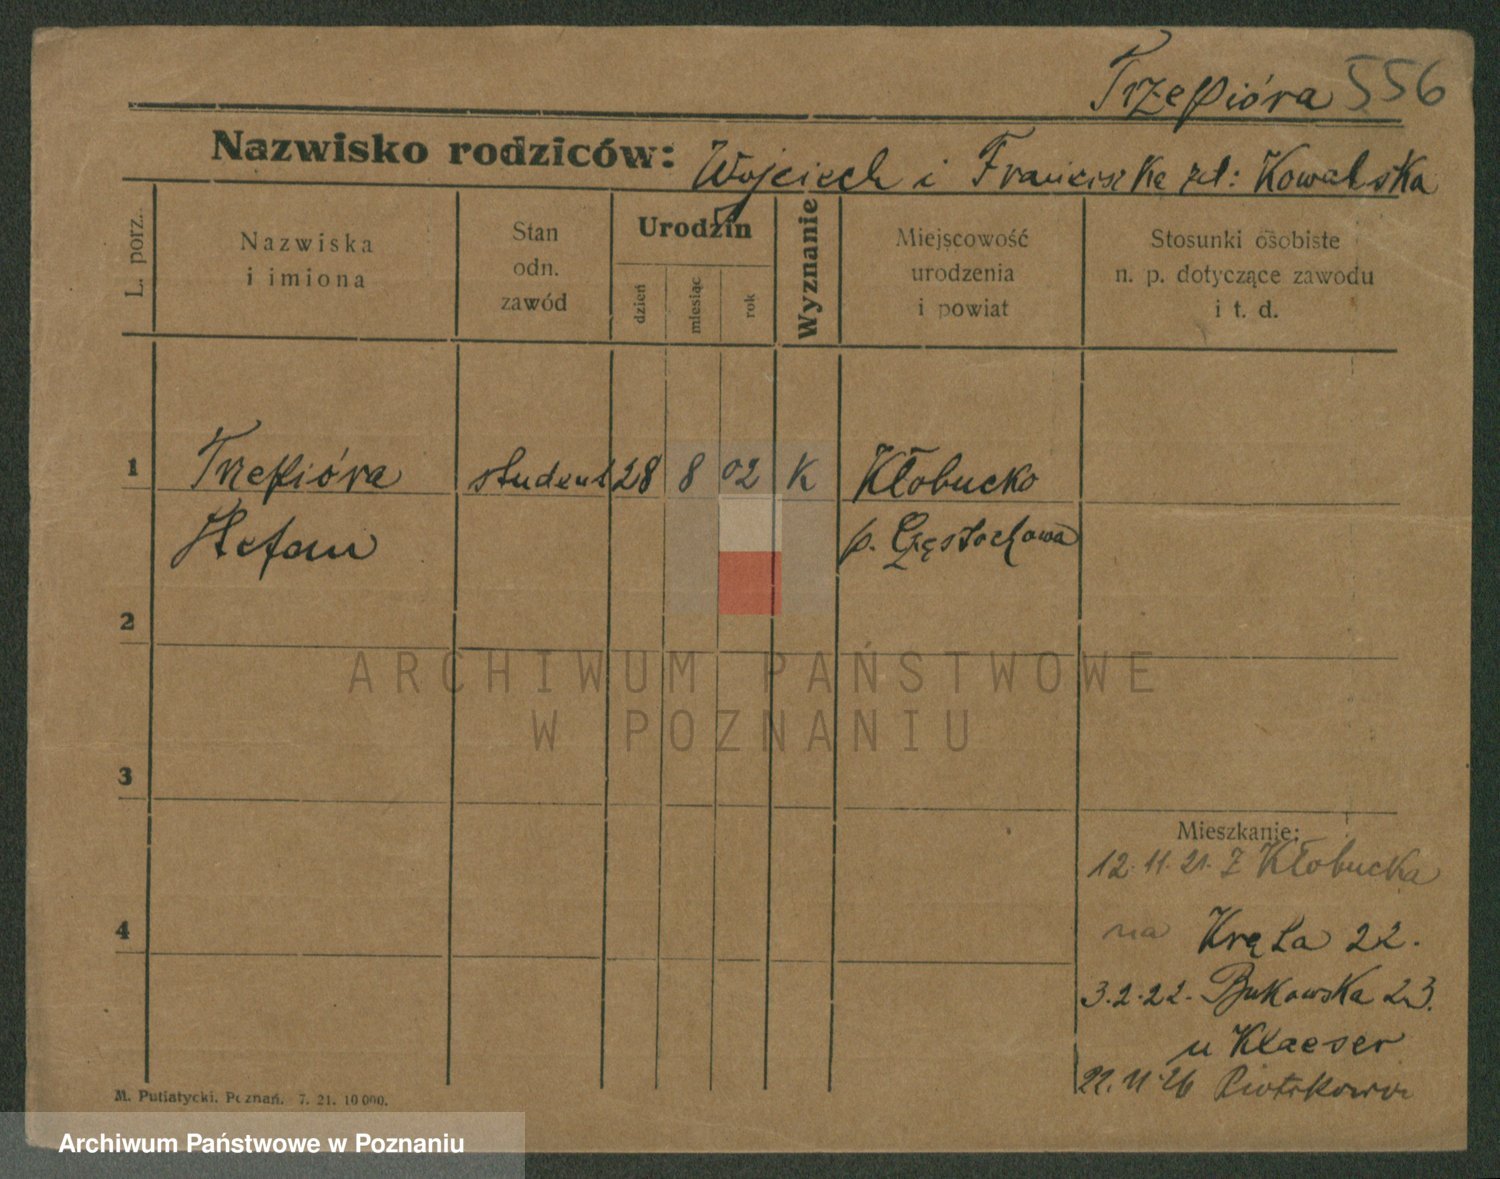 Trzepióra 556
Nazwisko rodziców: Wojciech i Franciszka zd: Kowalska
L. porz.
Nazwiska
i imiona
Stan
odn.
zawód
Urodzin
dzień
miesiąc
rok
Wyznanie
Miejscowość
urodzenia
i powiat
Stosunki osobiste
n. p. dotyczące zawodu
i t. d.
1 Trzepióra student 28 8 02 K Kłobucko
Stefan p. Częstochowa
2
ARCHIWUM PAŃSTWOWE
W POZNANIU
3
Mieszkanie:
12.11.21. z Kłobucka
4
na Kręta 22.
3.2.22. Bukowska 23.
u Klaeser
22.11.26 Piotrkowa
M. Putiatycki. Poznań. 7. 21. 10 000.
Archiwum Państwowe w Poznaniu